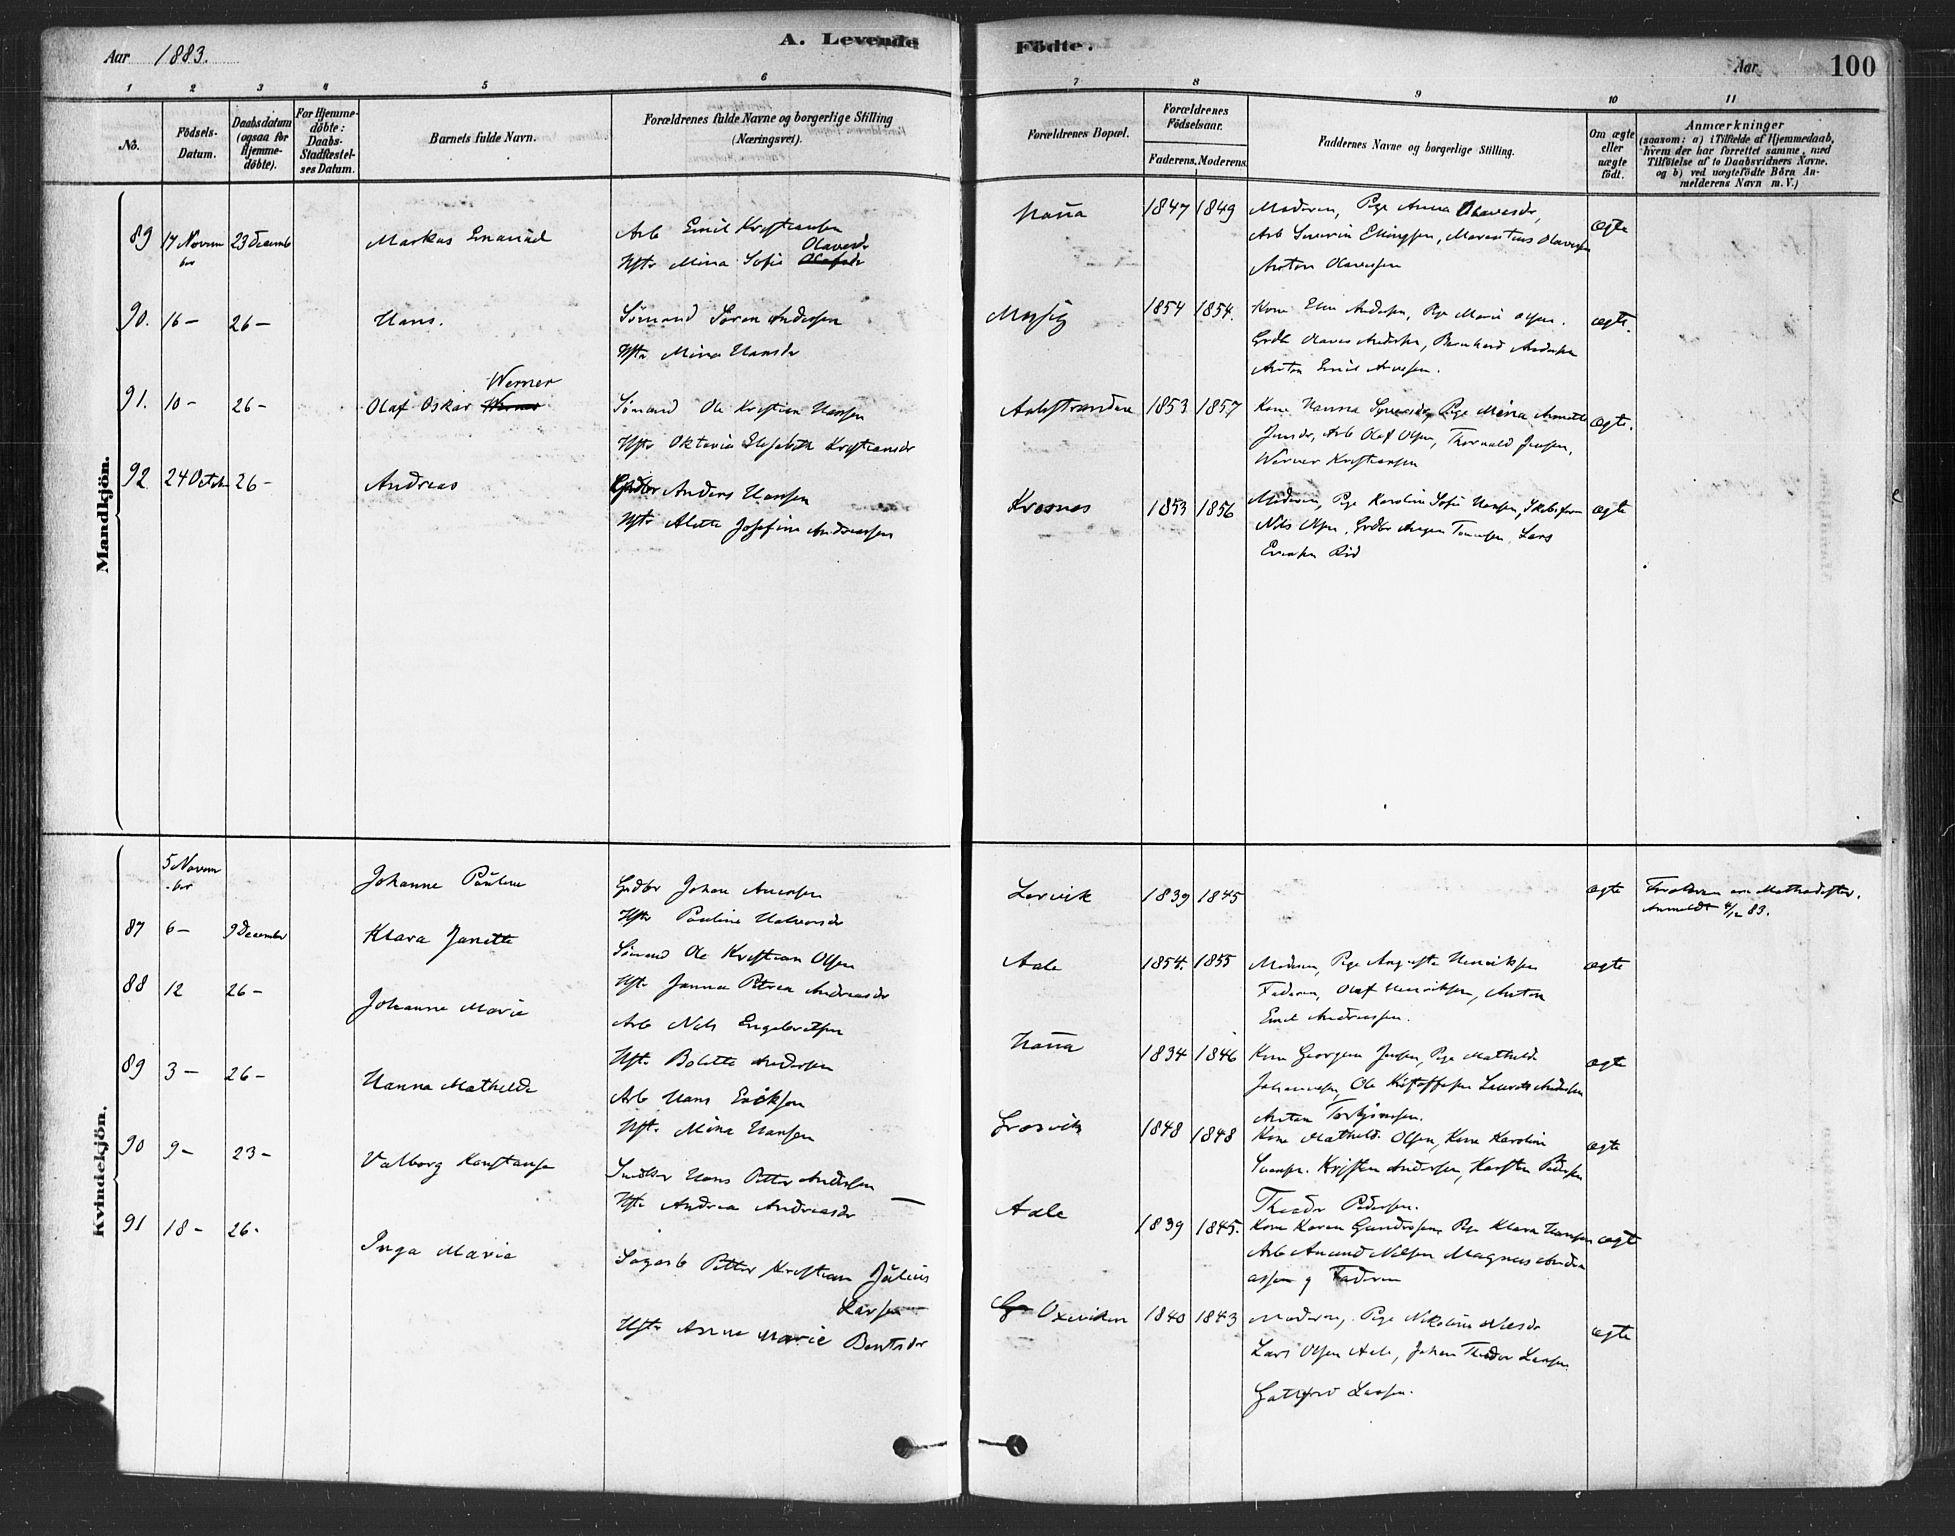 Aar 1883.
A. Levende Födte.
Aar 100
1 2 3 4 5 6 7 8 9 10 11
No.
Födsels-Datum.
Daabsdatum (ogsaa for Hjemme-döbte).
For Hjemme-döbte: Daabs-Stadfæstel-ses Datum.
Barnets fulde Navn.
Forældrenes fulde Navne og borgerlige Stilling (Næringsvei).
Forældrenes Bopæl.
Forældrenes Födselsaar.
Faderens. Moderens.
Faddernes Navne og borgerlige Stilling.
Om ægte eller uægte födt.
Anmærkninger
(saasom: a) i Tilfælde af Hjemmedaab, hvem der har forrettet samme, med Tilföielse af to Daabsvidners Navne, og b) ved uægtefödte Börn An-melderens Navn m. V.)
Mandkjön.
89 17 Novem 23 Decemb Markus Emanuel Arb Emil Kristiansen
ber
Hstr Mina Sofie Olavesdr
1847 1849 Moderen, Pige Anna Olavesdr,
Arb Severin Ellingsen, Olavesen
Anton Olavesen
ægte
90. 16 – 26 – Hans. Sömand Sören Andersen
Hstr Mina Hansdr
1854 1854. Kone Andersen, Pige Marie Olsen.
Grdb Olaves Andersen, Bernhard Andersen
Anton Emil
ægte.
91. 10 – 26 – Olaf Oskar Werner Sömand Ole Kristian Hansen
Hstr Oktavia Elisabeth Kristiansdr
Aalsstranden 1853 1857 Kone Hanna Pige Mina
Jensdr, Arb Olaf Olsen, Thorvald Jensen,
Werner Kristiansen
ægte.
92 24 Octob 26 – Andreas Grdbr Anders Hansen
Hstr Alette Josefine Andreassen
Krosnes 1853 1856 Moderen, Pige Karoline Sofie Hansen,
Nils Olsen, Grdbr Lars
ægte
Kvindekjön.
5 Novem
ber
Johanne Pauline Grdbr Johan
Hstr Pauline Halvorsdr
Lervik 1839 1845 ægte Forældrene ere Methodister.
Anmeldt 4/12 83.
87 6 – 9 December Klara Janette Sömand Ole Kristian Olsen
Hstr Janna Petrea Andreasdr
Aale 1854. 1855 Moderen, Pige Augusta Henriksen
Faderen, Olaf Henriksen, Anton
Emil Andreassen.
ægte
88 12 26 – Johanne Marie Arb Nils Engebretsen
Hstr Bolette Andersen
1834 1846 Kone Georgine Jensen, Pige Mathilde
Johannesen, Ole Kristoffersen Andersen
Anton Torbjörnsen.
ægte
89 3 – 26 – Hanna Mathilde Arb Hans Eriksen
Hstr. Mina Hansen
Græsvik 1848 1848 Kone Mathilde Olsen, Kone Karoline
Svensen. Kristen Andersen, Karsten Pedersen
Theodr Pedersen.
ægte
90 9 – 23 – Valborg Konstanse Hans Petter Andersen
Hstr Andrea Andreasdr
Aale 1839 1845. Kone Karen Gundersen, Pige Klara Hansen
Arb Amund Nilsen Magnus Andre
assen og Faderen
ægte
91 18 – 26 – Inga Marie Sagarb Petter Kristian Julius
Larsen
Hstr Anne Marie Bentsdr
Oxeviken 1840 1843 Moderen, Pige Nikoline Nilsdr
Lars Olsen Aale, Johan Theodor Larsen
Larsen.
ægte